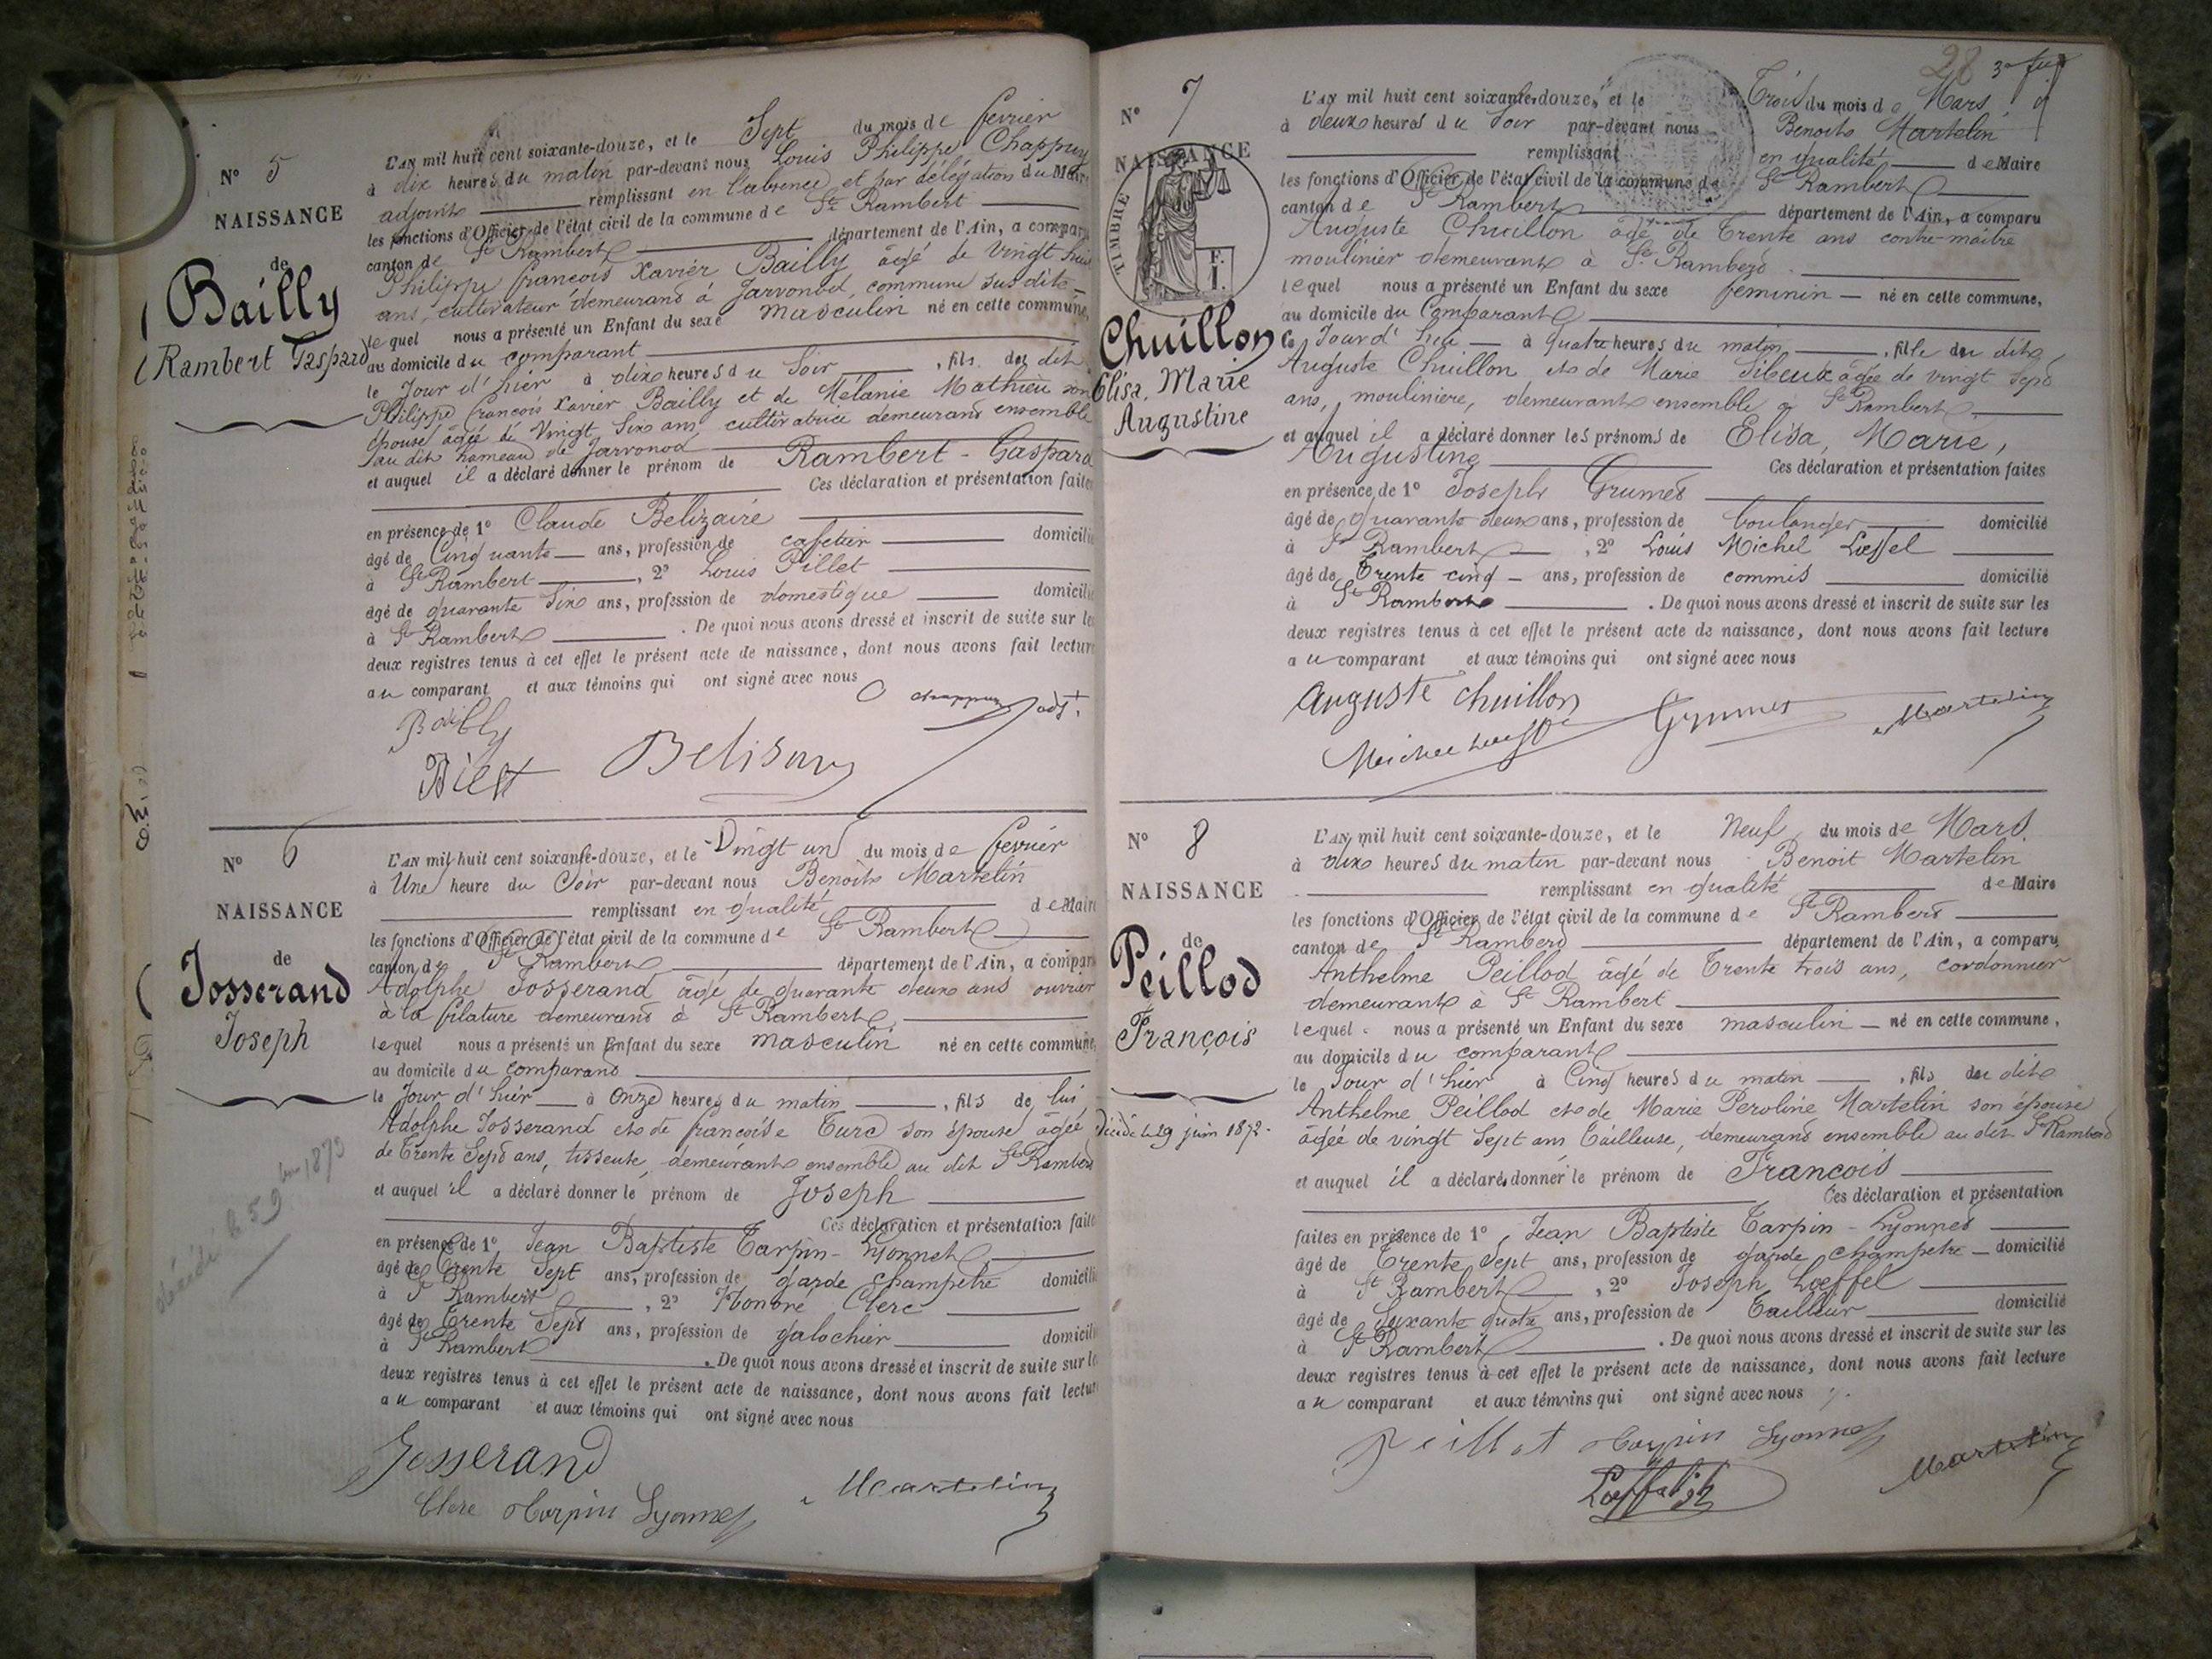 N° 5
NAISSANCE
de
Bailly
Rambert Gaspard
L'AN mil huit cent soixante-douze, et le Sept du mois de février
à dix heures du matin par-devant nous Louis Philippe Chappuy
adjoint remplissant en l'absence et par délégation du Maire
les fonctions d'Officier de l'état civil de la commune de St Rambert
canton de St Rambert département de l'Ain, a comparu
Philippe françois Xavier Bailly âgé de Vingt huit
ans, cultivateur demeurant à Javornod, commune susdite
lequel nous a présenté un Enfant du sexe masculin né en cette commune,
au domicile du comparant
le Jour d'hier à dix heures du Soir, fils du dit
Philippe françois Xavier Bailly et de Mélanie Mathieu son
épouse âgée de Vingt Six ans, cultivatrice demeurant ensemble
au dit hameau de Javornod
et auquel il a déclaré donner le prénom de Rambert-Gaspard
Ces déclaration et présentation faites
en présence de 1° Claude Belizaire
âgé de Cinquante ans, profession de cafetier domicilié
à St Rambert, 2° Louis Pillet
âgé de quarante Six ans, profession de domestique domicilié
à St Rambert. De quoi nous avons dressé et inscrit de suite sur les
deux registres tenus à cet effet le présent acte de naissance, dont nous avons fait lecture
au comparant et aux témoins qui ont signé avec nous
Chappuy adjt
Bailly
Belisair
N° 6
NAISSANCE
de
Josserand
Joseph
décédé le 5 9bre 1873
L'AN mil huit cent soixante-douze, et le Vingt un du mois de février
à Une heure du Soir par-devant nous Benoit Martelin
remplissant en qualité de Maire
les fonctions d'Officier de l'état civil de la commune de St Rambert
canton de St Rambert département de l'Ain, a comparu
Adolphe Josserand âgé de quarante deux ans ouvrier
à la filature demeurant à St Rambert
lequel nous a présenté un Enfant du sexe masculin né en cette commune,
au domicile du comparant
le Jour d'hier à Onze heures du matin, fils de lui
Adolphe Josserand et de françoise Turc son épouse âgée
de Trente Sept ans, tisseuse, demeurant ensemble au dit St Rambert
et auquel il a déclaré donner le prénom de Joseph
Ces déclaration et présentation faites
en présence de 1° Jean Baptiste Tarpin-Lyonnet
âgé de Trente Sept ans, profession de garde champetre domicilié
à St Rambert, 2° Honoré Clerc
âgé de Trente Sept ans, profession de galochier domicilié
à St Rambert. De quoi nous avons dressé et inscrit de suite sur les
deux registres tenus à cet effet le présent acte de naissance, dont nous avons fait lecture
au comparant et aux témoins qui ont signé avec nous
Josserand
Clerc Tarpin Lyonnet Martelin
28
N° 7
NAISSANCE
TIMBRE
F.
I.
Chuillon
Elisa, Marie
Augustine
L'AN mil huit cent soixante-douze, et le Trois du mois de Mars
à deux heures du Soir par-devant nous Benoit Martelin
remplissant en qualité de Maire
les fonctions d'Officier de l'état civil de la commune de St Rambert
canton de St Rambert département de l'Ain, a comparu
Auguste Chuillon âgé de Trente ans contre-maître
moulinier demeurant à St Rambert
lequel nous a présenté un Enfant du sexe féminin né en cette commune,
au domicile du Comparant
le Jour d'hui à quatre heures du matin, fille du dit
Auguste Chuillon et de Marie Sibeux âgée de vingt Sept
ans, moulinière, demeurant ensemble à St Rambert
et auquel il a déclaré donner les prénoms de Elisa, Marie,
Augustine Ces déclaration et présentation faites
en présence de 1° Joseph Grumet
âgé de quarante deux ans, profession de boulanger domicilié
à St Rambert, 2° Louis Michel Loeffel
âgé de Trente cinq ans, profession de commis domicilié
à St Rambert. De quoi nous avons dressé et inscrit de suite sur les
deux registres tenus à cet effet le présent acte de naissance, dont nous avons fait lecture
au comparant et aux témoins qui ont signé avec nous
Auguste Chuillon Grumet Martelin
N° 8
NAISSANCE
de
Peillod
François
Décédé le 29 juin 1872.
L'AN mil huit cent soixante-douze, et le Neuf du mois de Mars
à dix heures du matin par-devant nous Benoit Martelin
remplissant en qualité de Maire
les fonctions d'Officier de l'état civil de la commune de St Rambert
canton de St Rambert département de l'Ain, a comparu
Anthelme Peillod âgé de Trente trois ans, cordonnier
demeurant à St Rambert
lequel nous a présenté un Enfant du sexe masculin né en cette commune,
au domicile du comparant
le Jour d'hier à Cinq heures du matin, fils du dit
Anthelme Peillod et de Marie Peroline Martelin son épouse
âgée de vingt Sept ans Tailleuse, demeurant ensemble au dit St Rambert
et auquel il a déclaré donner le prénom de François
Ces déclaration et présentation
faites en présence de 1° Jean Baptiste Tarpin-Lyonnet
âgé de Trente Sept ans, profession de garde champetre domicilié
à St Rambert, 2° Joseph Loeffel
âgé de Soixante quatre ans, profession de Tailleur domicilié
à St Rambert. De quoi nous avons dressé et inscrit de suite sur les
deux registres tenus à cet effet le présent acte de naissance, dont nous avons fait lecture
au comparant et aux témoins qui ont signé avec nous
Peillot Tarpin Lyonnet
Martelin